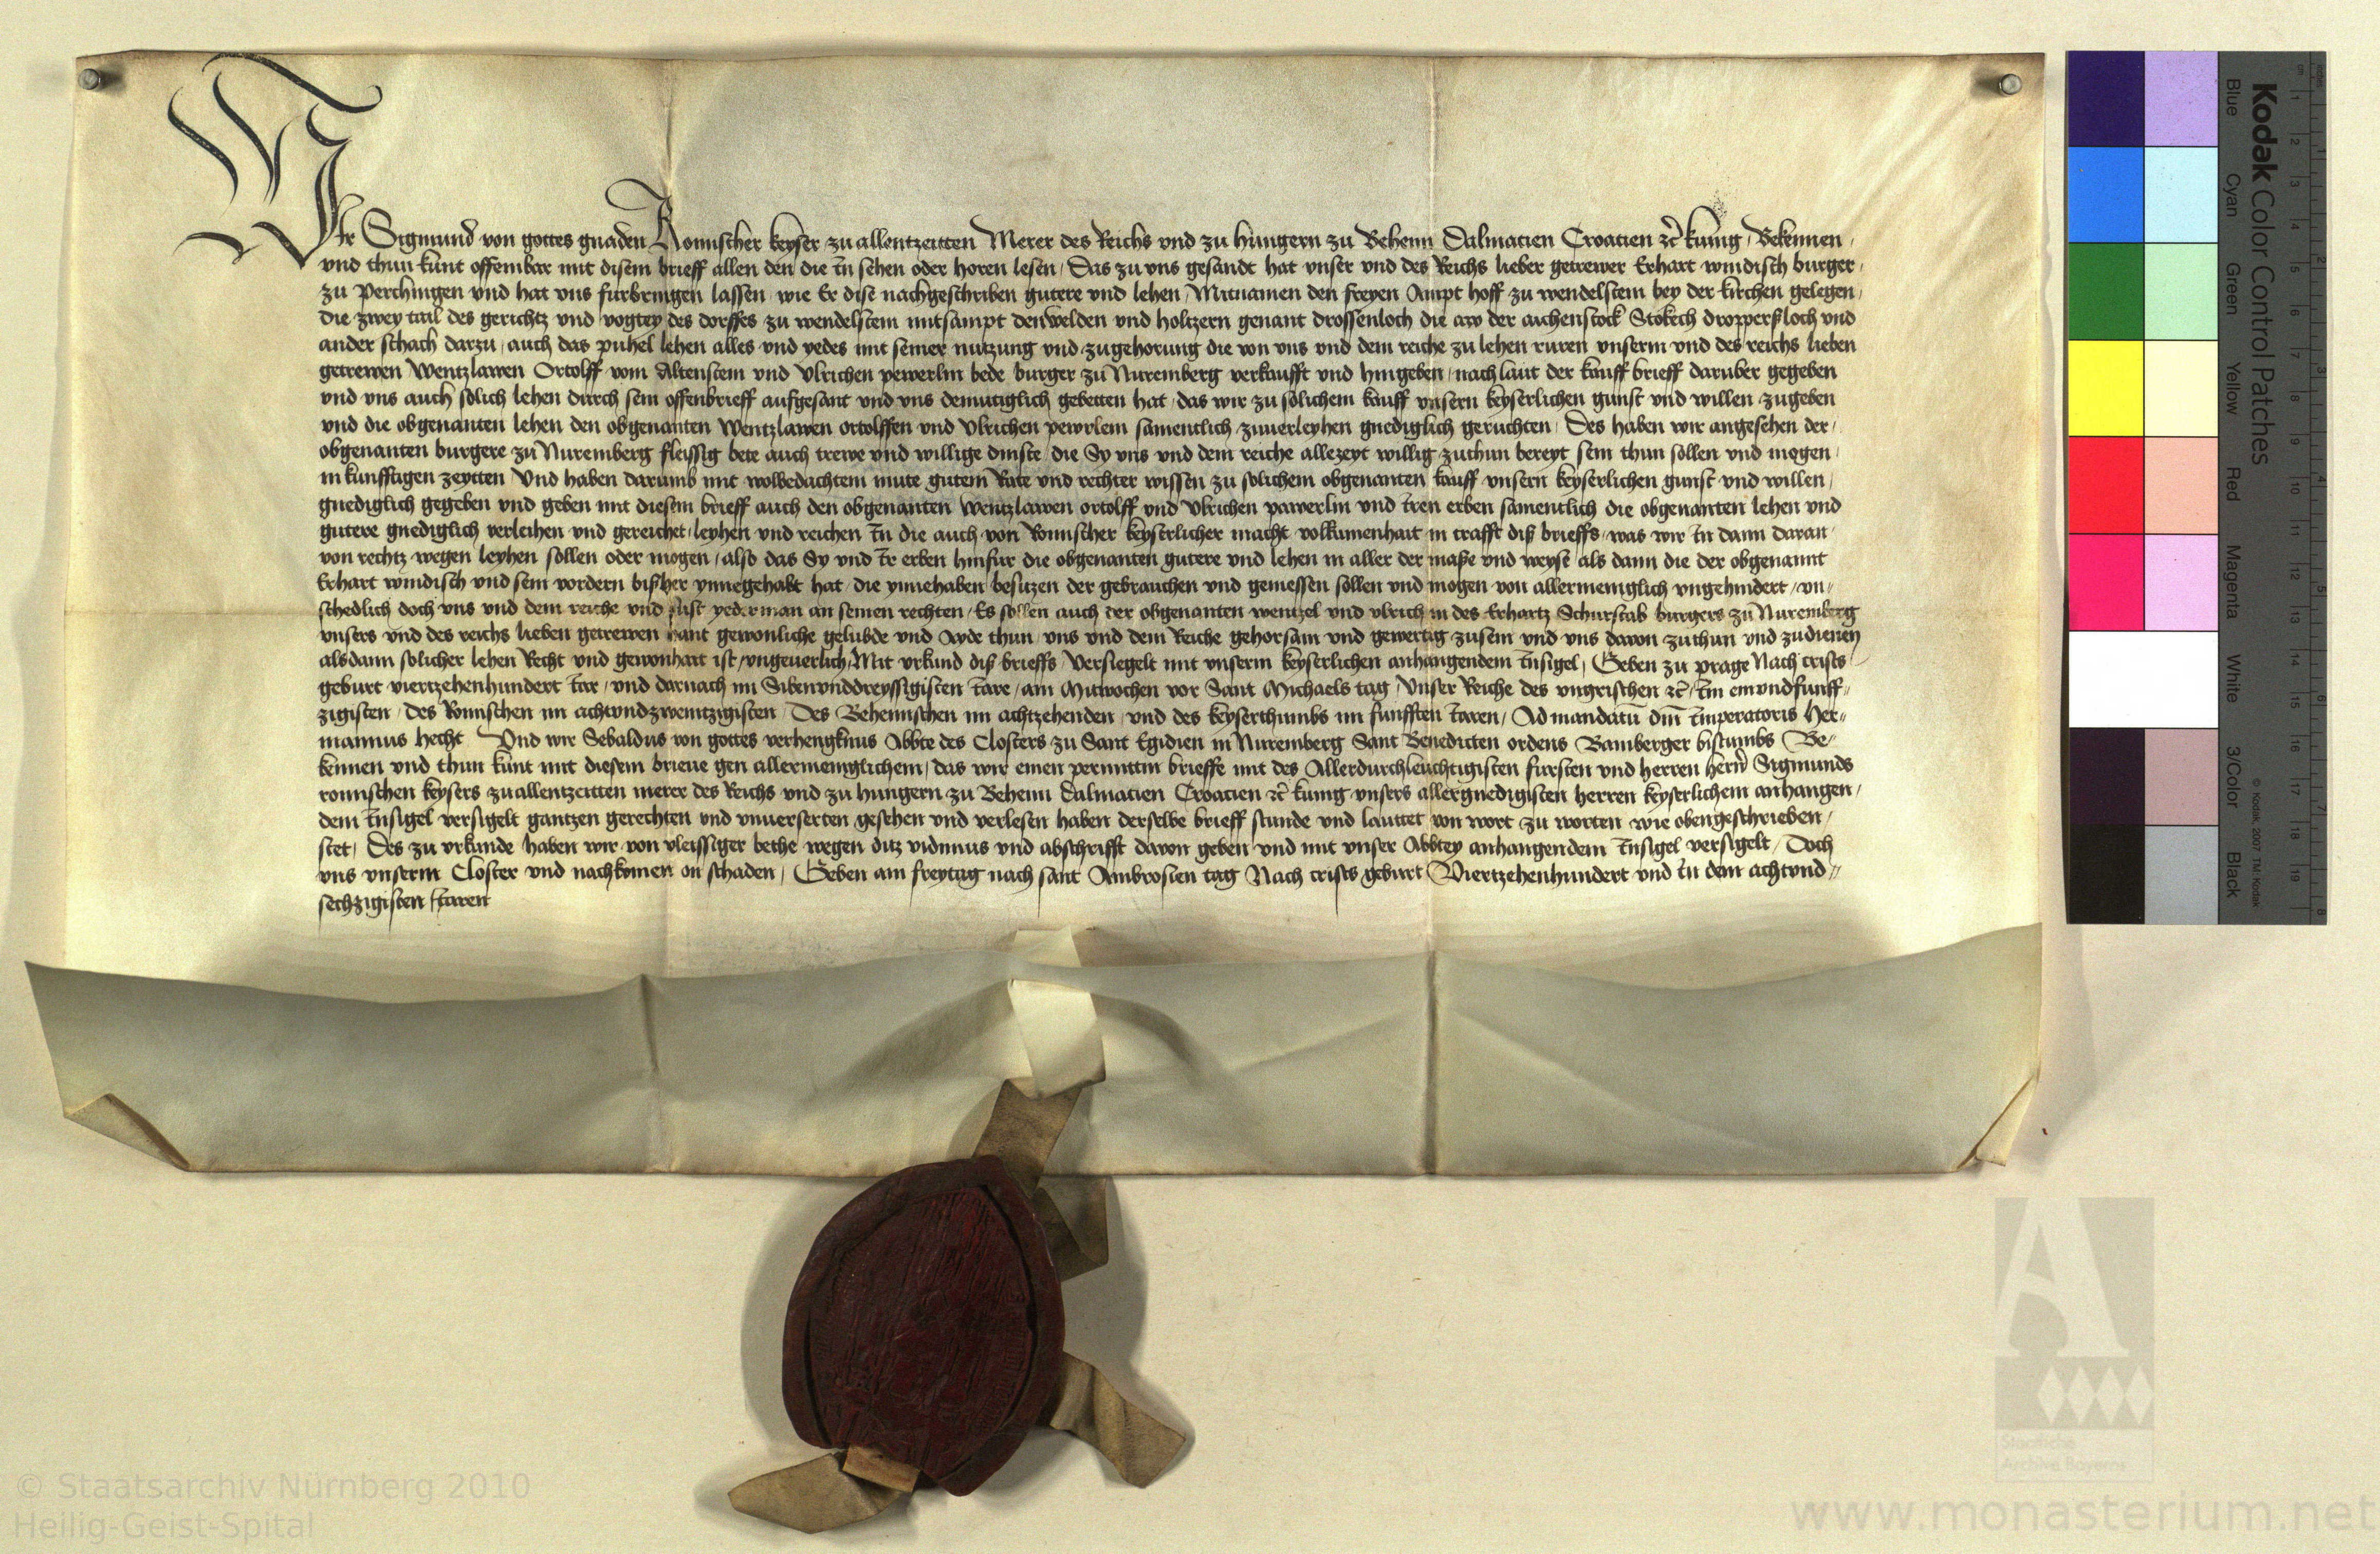 Wir Sigmund von gottes gnaden Romischer keyser zu allentzeitten Merer des Reichs vnd zu hungern zu Behem Dalmatien Croatien ꝛc̃ kunig / Bekennen /
vnd thun kunt offembar mit disem brieff allen den die in sehen oder horen lesen / Das zu vns gesandt hat vnser vnd des Reichs lieber getrewer Erhart windisch burger /
zu Perchingen vnd hat vns furbringen lassen wie Er dise nachgeschriben gutere vnd lehen / Mitnamen den freyen Ampt hoff zu wendelstein bey der kirchen gelegen /
die zwey tail des gerichtz vnd vogtey des dorffes zu wendelstein mitsampt den welden vnd holtzern genant drossenloch die aw der aichenstock Stokech droppersloch vnd
ander schach darzu / auch das puhel lehen alles vnd yedes mit seiner nutzung vnd zugehorung die von vns vnd dem reiche zu lehen ruren vnserm vnd des reichs lieben
getrewen Wentzlawen Ortolff vom Altenstein vnd Vlrichen pewerlin bede burger zu Nuremberg verkaufft vnd hingeben / nach laut der kauff brieff daruber gegeben
vnd vns auch solich lehen durch sein offenbrieff aufgesant vnd vns demutiglich gebetten hat / das wir zu solichem kauff vnsern keyserlichen gunst vnd willen zugeben
vnd die obgenanten lehen den obgenanten Wentzlawen ortolffen vnd Vlrichen pewrlein samentlich zuuerleyhen gnediglich geruchten / Des haben wir angesehen der /
obgenanten burgere zu Nuremberg fleissig bete auch trewe vnd willige dinste / die Sy vns vnd dem reiche allezeyt willig zuthun bereyt sein thun sollen vnd mogen /
in kunfftigen zeytten Vnd haben darumb mit wolbedachtem mute gutem Rate vnd rechter wissen zu solichem obgenanten kauff vnsern keyserlichen gunst vnd willen /
gnediglich gegeben vnd geben mit diesem brieff auch den obgenanten Wentzlawen ortolff vnd Vlrichen pawerlin vnd iren erben samentlich die obgenanten lehen vnd
gutere gnediglich verleihen vnd gereichet / leyhen vnd reichen in die auch von Romischer keyserlicher macht volkumenhait in crafft diß brieffs / was wir in dann daran /
von rechtz wegen leyhen sollen oder mogen / also das Sy vnd ir erben hinfur die obgenanten gutere vnd lehen in aller der maße vnd weyse als dann die der obgenannt
Erhart windisch vnd sein vordern bißher ynnegehabt hat / die ynnehaben besitzen der gebrauchen vnd geniessen sollen vnd mogen von allermeniglich vngehindert / vn-
schedlich doch vns vnd dem reiche vnd sust yederman an seinen rechten / Es sollen auch der obgenanten wentzel vnd vlrich in des Erhartz Schurstab burgers zu Nuremberg
vnsers vnd des reichs lieben getrewen hant gewonliche gelubde vnd Ayde thun / vns vnd dem Reiche gehorsam vnd gewertig zusein vnd vns dauon zuthun vnd zudienen
alsdann solicher lehen Recht vnd gewonhait ist / vngeuerlich / Mit vrkund diß brieffs Versiegelt mit vnserm keyserlichen anhangendem insigel / Geben zu prage Nach crists
geburt viertzehenhundert iar / vnd darnach im Sibenvnddreyssigisten iare / am Mitwochen vor Sant Michaels tag / Vnser Reiche des vngrischen ꝛc̃ / im einvndfunff-
zigisten / des Romischen im achtvndzweintzigisten / Des Behemischen im achtzehenden / vnd des keyserthumbs im funfften iaren / Ad mandatū dm̄ imperatoris Her-
mannus hecht Vnd wir Sebaldus von gottes verhengknus Abbte des Closters zu Sant Egidien in Nuremberg Sant Benedicten ordens Bamberger bistumbs Be-
kennen vnd thun kunt mit diesem brieue gen allermeniglichem / das wir einen permittin brieffe mit des Allerdurchleuchtigisten fursten vnd herren hern Sigmunds
romischen keysers zuallentzeitten merer des Reichs vnd zu hungern zu Behemi Dalmatien Croatien ꝛc̃ kunig vnsers allergnedigisten herren keyserlichem anhangen /
dem insigel versigelt gantzen gerechten vnd vnuerserten gesehen vnd verlesen haben derselbe brieff stunde vnd lauttet von wort zu worten wie obengeschrieben /
stet / Des zu vrkunde haben wir von vleissiger bethe wegen ditz vidimus vnd abschrifft dauon geben vnd mit vnser Abbtey anhangendem insigel versigelt / Doch
vns vnserm Closter vnd nachkomen on schaden / Geben am freytag nach sant Ambrosien tag Nach crists geburt Viertzehenhundert vnd in dem achtvnd-
sechzigisten iaren
Kodak Color Control Patches
Blue Cyan Green Yellow Red Magenta White 3/Color Black
© Kodak, 2007 TM: Kodak
Staatliche
Archive Bayerns
© Staatsarchiv Nürnberg 2010
Heilig-Geist-Spital
www.monasterium.net